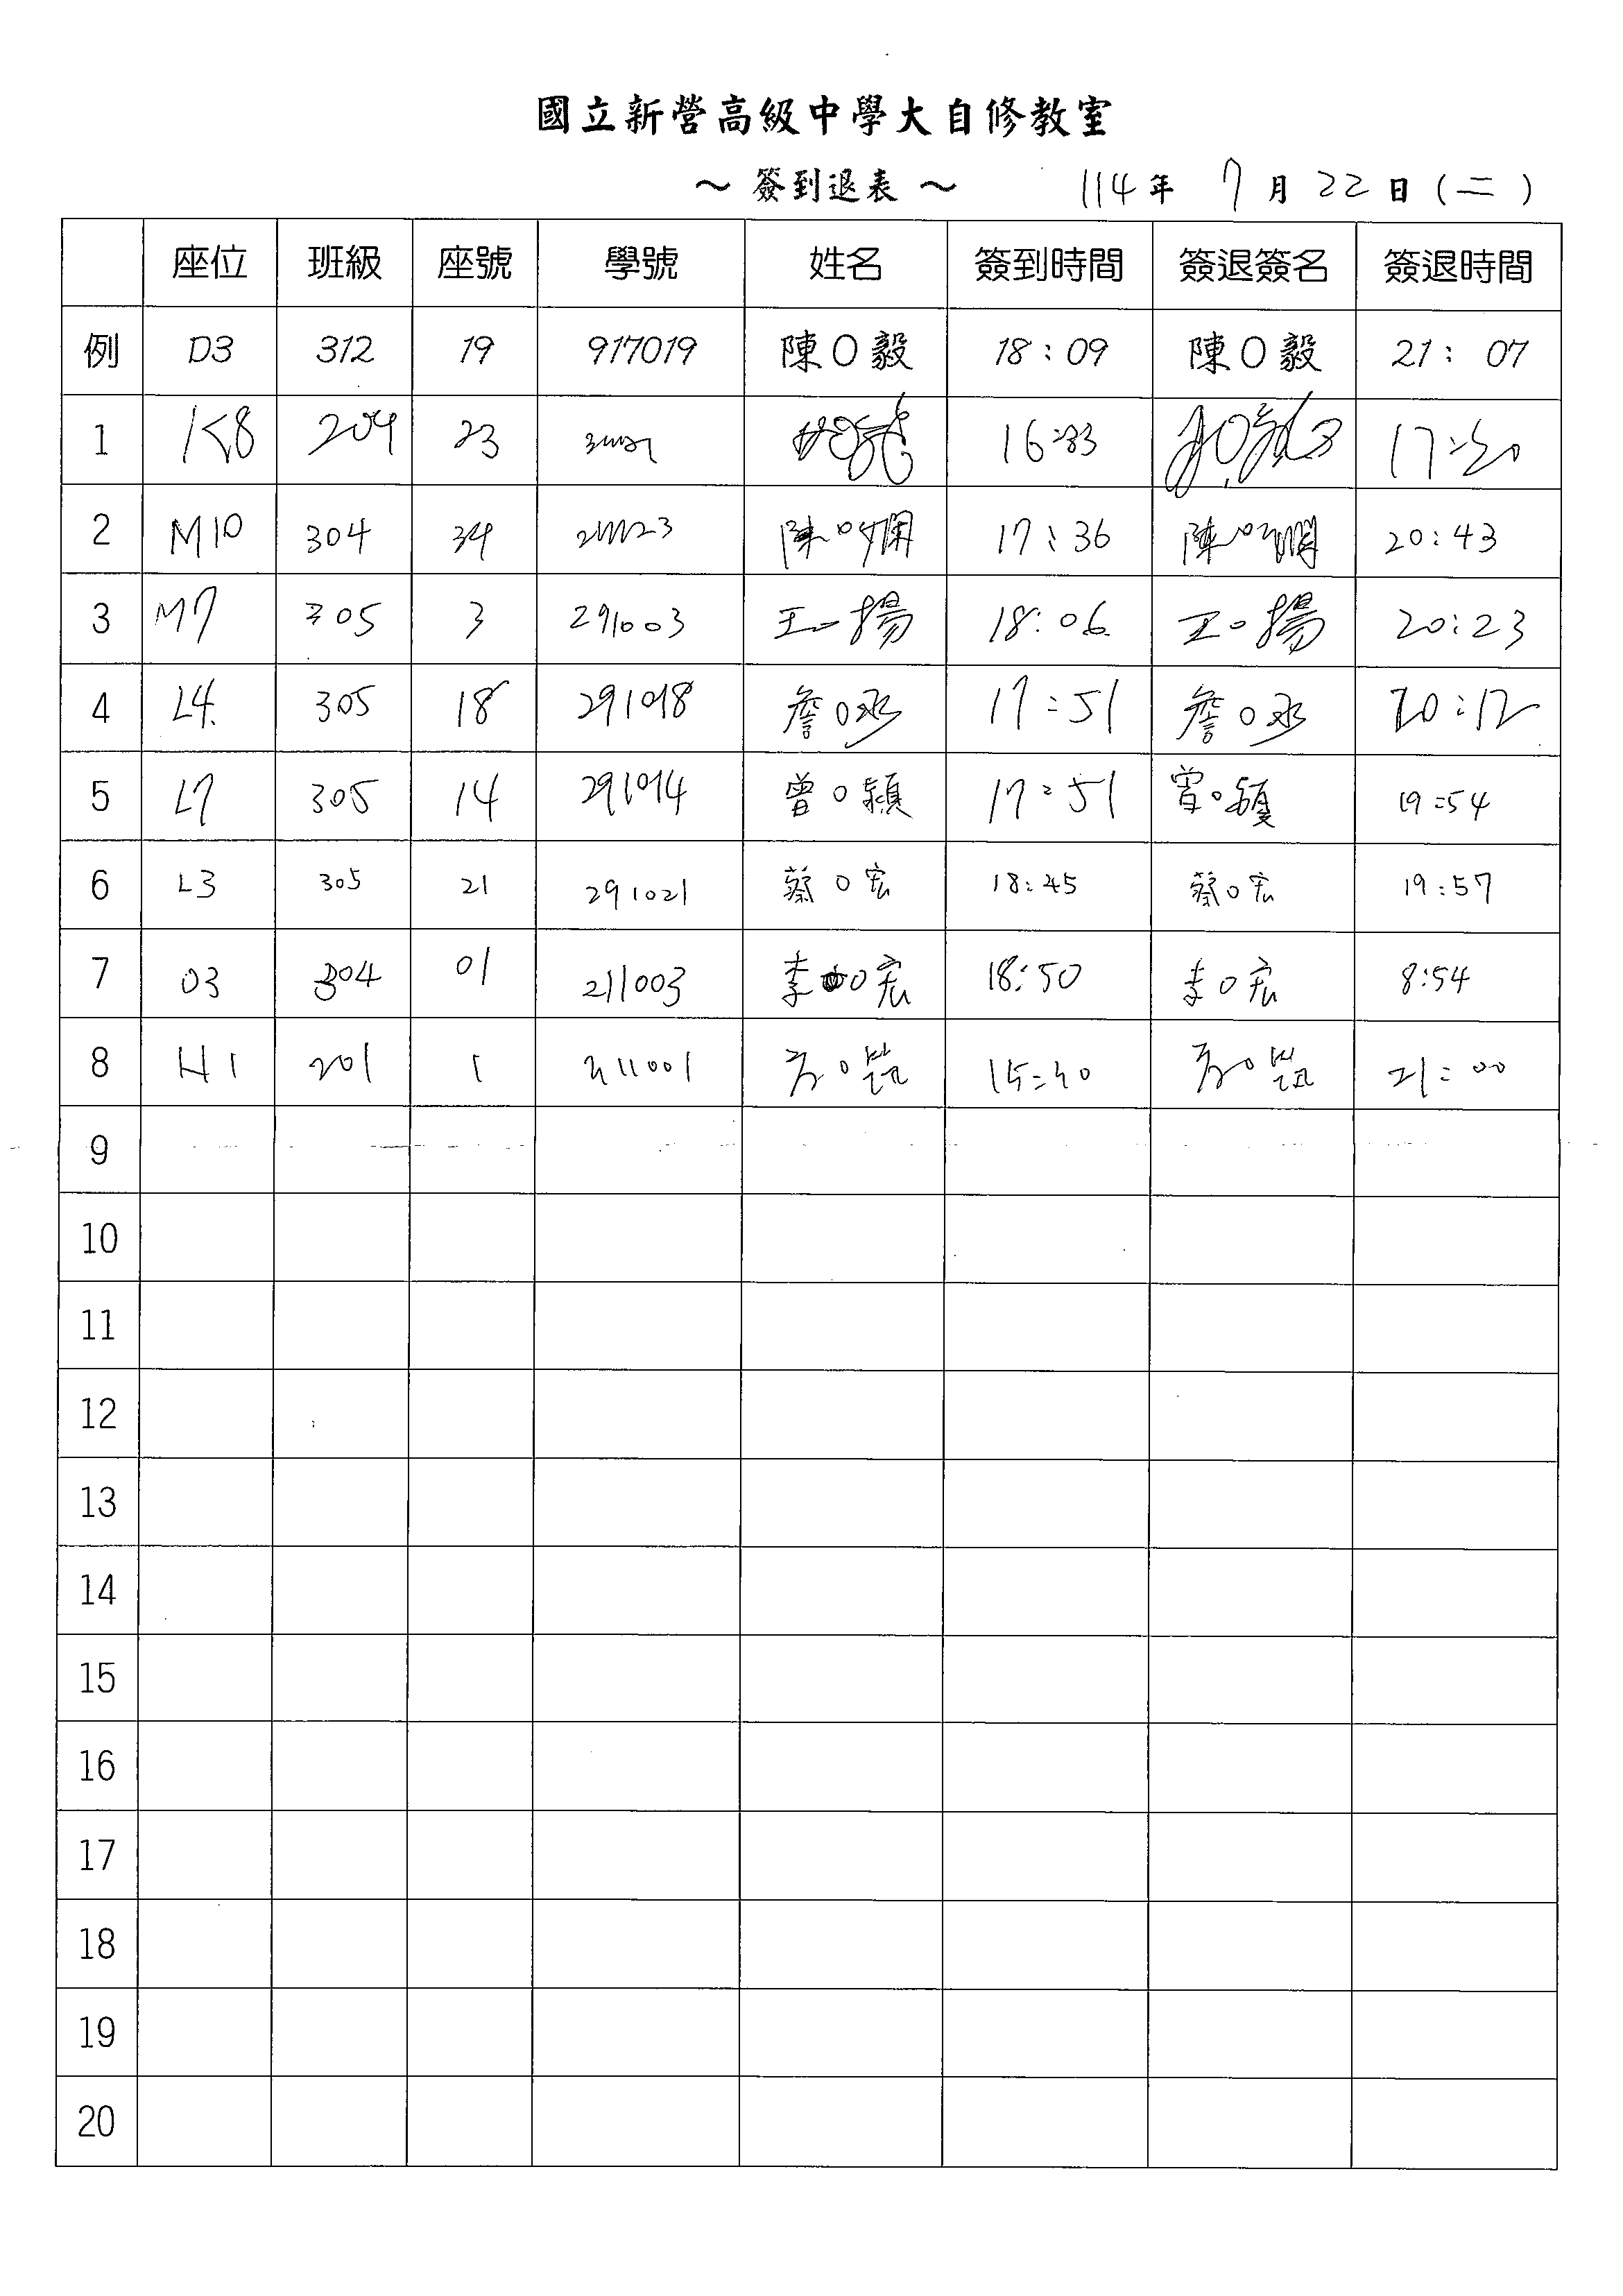 國立新營高級中學大自修教室
～ 簽到退表 ～ 114年 7月22日(二)
座位 班級 座號 學號 姓名 簽到時間 簽退簽名 簽退時間
例 D3 312 19 917019 陳O毅 18:09 陳O毅 21:07
1 K8 204 23 16:33 17:50
2 M10 304 34 陳O嫻 17:36 陳O嫻 20:43
3 M7 305 3 291003 王O揚 18:06 王O揚 20:23
4 L4 305 18 291018 詹O丞 17:51 詹O丞 20:12
5 L7 305 14 291014 曾O穎 17:51 曾O穎 19:54
6 L3 305 21 291021 蔡O宏 18:45 蔡O宏 19:57
7 O3 304 01 211003 李O宏 18:50 李O宏 8:54
8 H1 201 1 311001 方O 15:40 方O 21:00
9
10
11
12
13
14
15
16
17
18
19
20